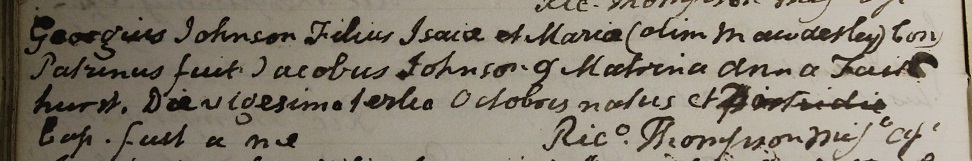 Ric. Thompson Miss Ap
Georgius Johnson Filius Isaiæ et Mariæ (olim Mawdesley) Con
Patrinus fuit Jacobus Johnson & Matrina Anna Fair
hurst. Die vigesima tertia Octobris natus et
Bap. fuit a me Ric°. Thompson Miss° Ap°